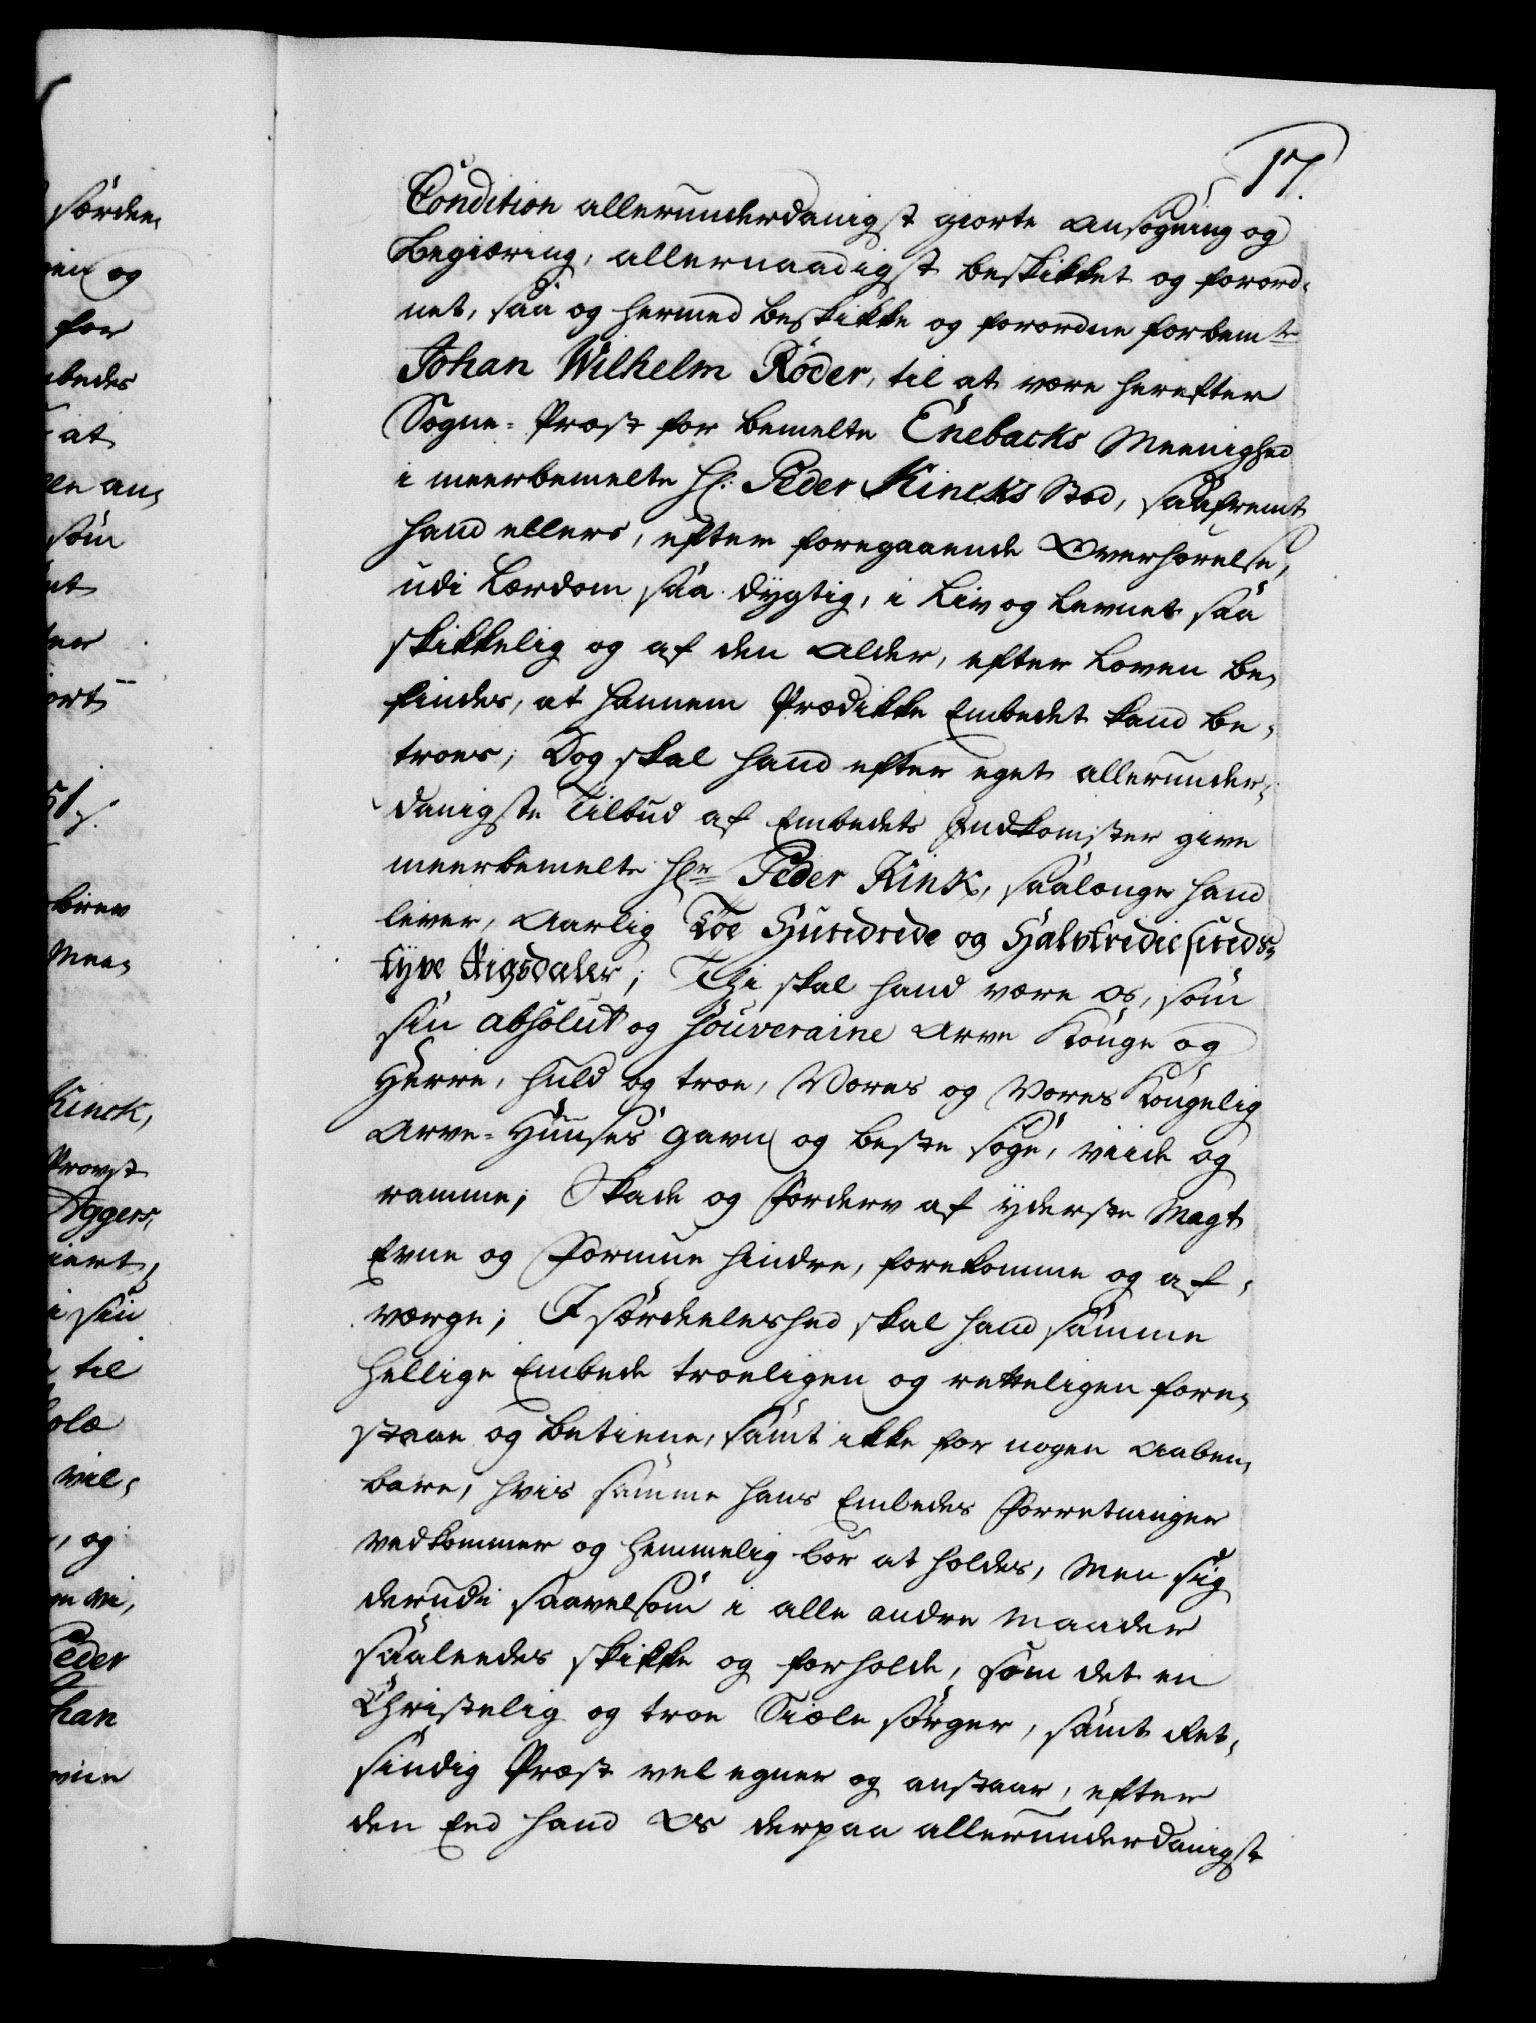 17.
Condition allerunderdanigst giorte Ansøgning og
Begiæring, allernaadigst beskikket og forord,
net, saa og hermed beskikke og forordne forbemte
Johan Wilhelm Röder, til at være herefter
Sogne-Præst for bemelte Enebacks Meenighed
i meerbemelte Hr: Peder Kincks Stæd, saafremt
hand ellers, efter foregaaende Overhørelse,
udi Lærdom saa dygtig, i Liv og Levnet saa
skikkelig og af den Alder, efter Loven be,
findes, at hannem Prædikke Embedet kand be,
troes; Dog skal hand efter eget allerunder,
danigste Tilbud af Embedets Indkomster give
meerbemelte Hr Peder Kink, saalænge hand
lever, Aarlig Toe Hundrede og Halvtrediesinds,
tyve Rigsdaler; Thi skal hand være Os, som
sin absolut og souveraine Arve Konge og
Herre, huld og troe, Vores og Vores Kongelig
Arve-Huuses Gavn og beste søge, viide og
ramme; Skade og Forderv af yderste Magt
Evne og Formue hindre, forekomme og af,
værge; I særdeleshed skal hand samme
hellige Embede troeligen og retteligen fore,
staae og betiene, samt ikke for nogen aaben,
bare, hvis samme hans Embedes Forretninger
vedkommer og hemmelig bør at holdes, Men sig
derudi saavelsom i alle andre Maader
saaledes skikke og forholde, som det en
Christelig og troe Siæle sørger, samt Ret,
sindig Præst vel egner og anstaar, efter
den Eed hand Os derpaa allerunderdanigst